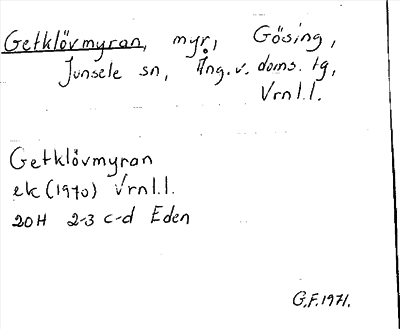 Getklövmyran, myr, Gösing,
Junsele sn, Ång. v. doms. tg,
Vrnl.l.
Getklövmyran
ek (1970) Vrnl.l.
20H 2-3 c-d Eden
G.F. 1971.